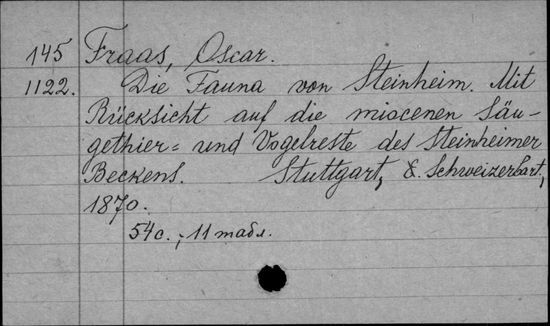 145 Fraas, Oscar.
1122. Die Fauna von Steinheim. Mit
Rücksicht auf die miocenen Säu-
gethier= und Vogelreste des Steinheimer
Beckens. Stuttgart, E. Schweizerbart,
1870.
54 с., 11 табл.